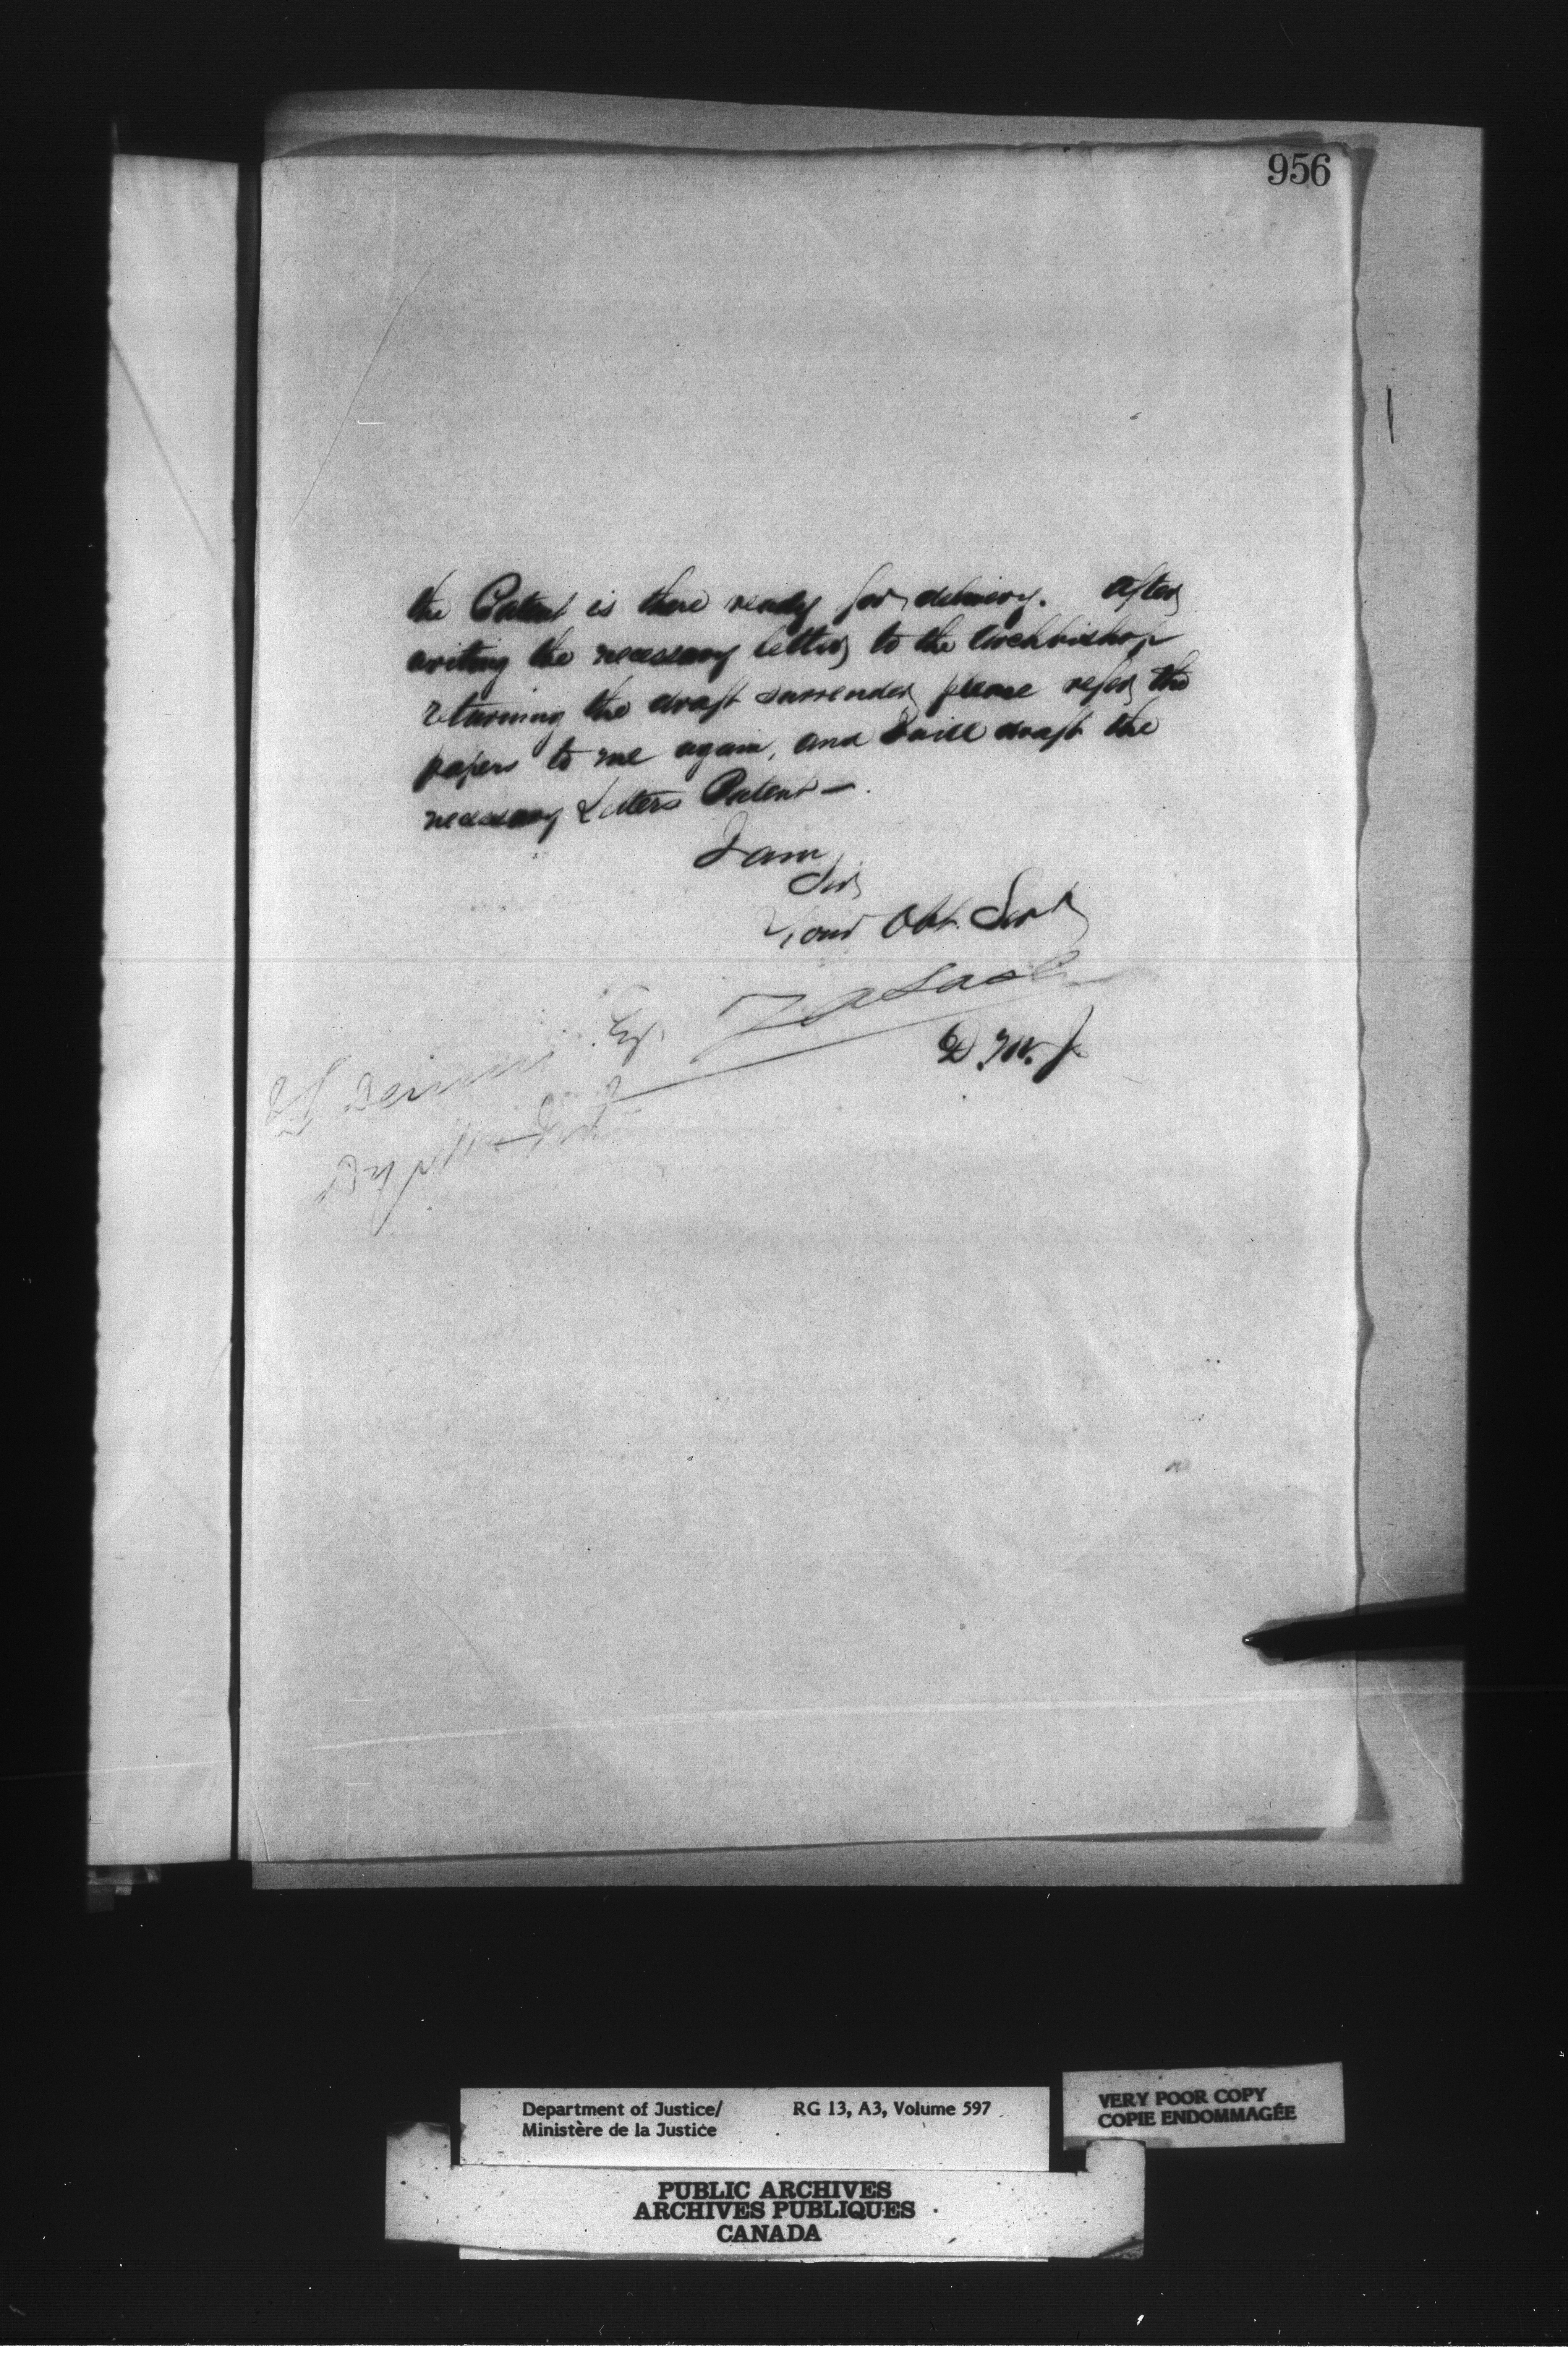 956
the Patent is there ready for delivery. After
writing the necessary letter to the Archbishop
returning the draft surrender please refer the
papers to me again, and I will draft the
necessary Letters Patent —.
I am
Sir
Your Obt. Servt
Z A Lash
D. M. J.
Esq.
Department of Justice/
Ministère de la Justice
RG 13, A3, Volume 597
VERY POOR COPY
COPIE ENDOMMAGÉE
PUBLIC ARCHIVES
ARCHIVES PUBLIQUES
CANADA